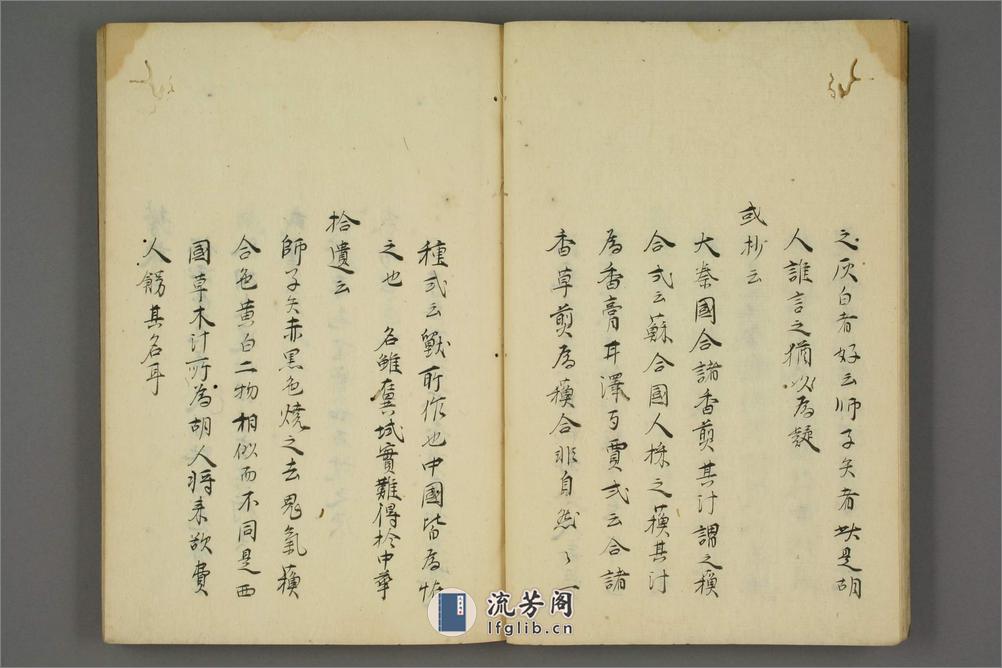 之灰白者好云师子矢者此是胡
人誰言之猶以為疑
或抄云
大秦國合諸香煎其汁謂之蘓
合或云蘇合國人採之其汁
為香膏并澤与賈或云合諸
香草煎為蘓合非自然々一
種或云獸所作也中國皆為
之也 名雖域實難得於中華
拾遺云
師子矢赤黑色燒之去鬼氣蘓
合色黄白二物相似而不同是西
國草木汁所為胡人将来欲貴
人餝其名耳
流芳阁
lfglib.cn